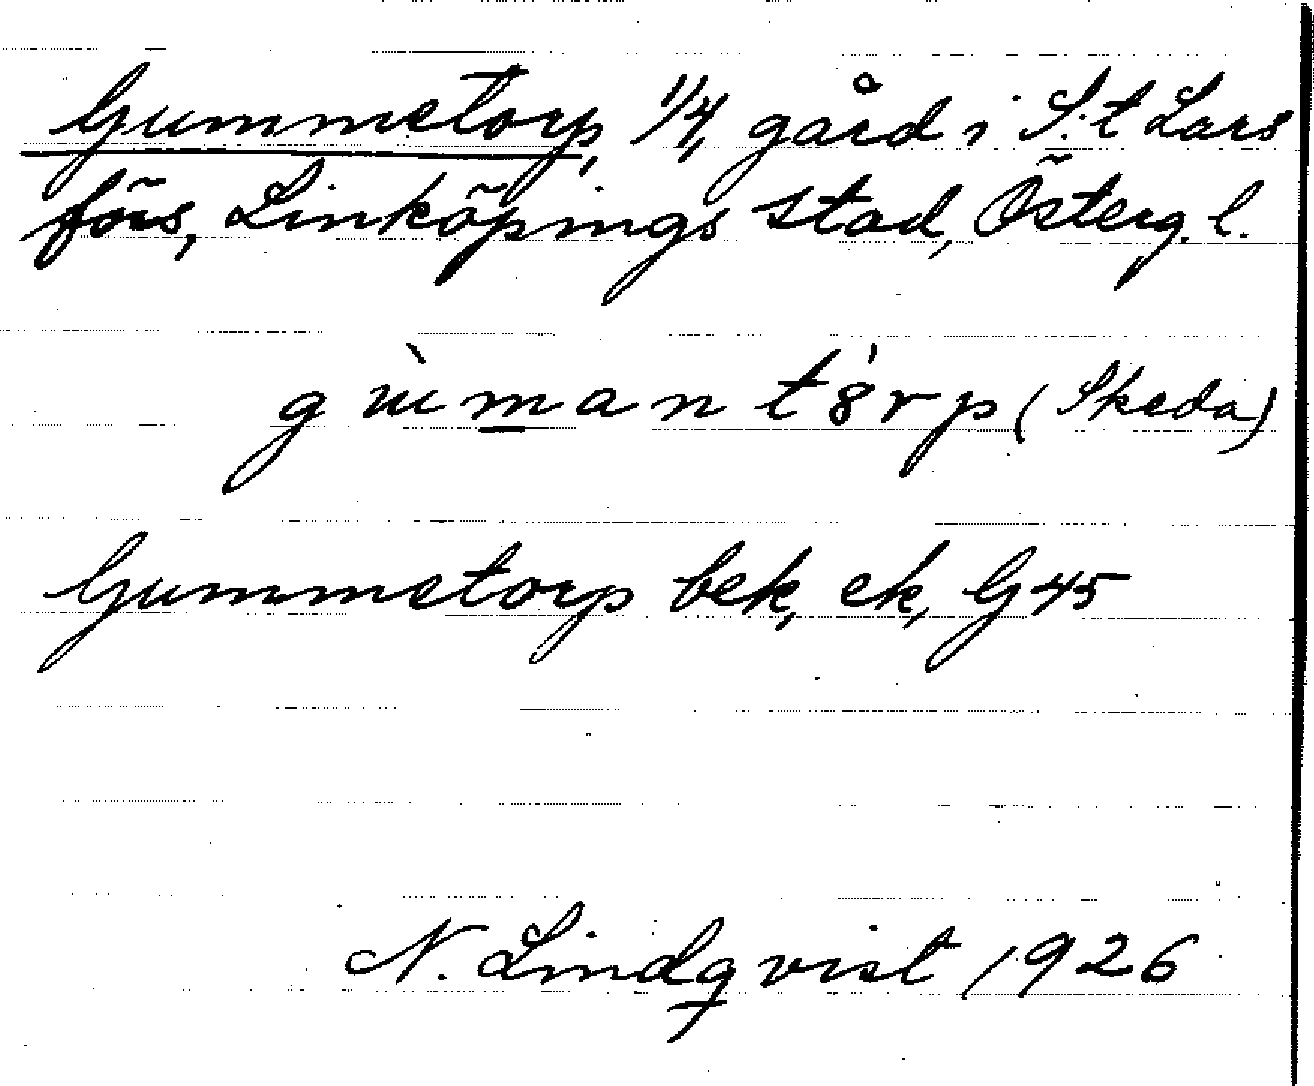 Gummetorp, 1/4, gård i S:t Lars
förs, Linköpings stad, Österg. l.
gùmantó̀rp (Skeda)
Gummetorp bek, ek, G45
N. Lindqvist 1926